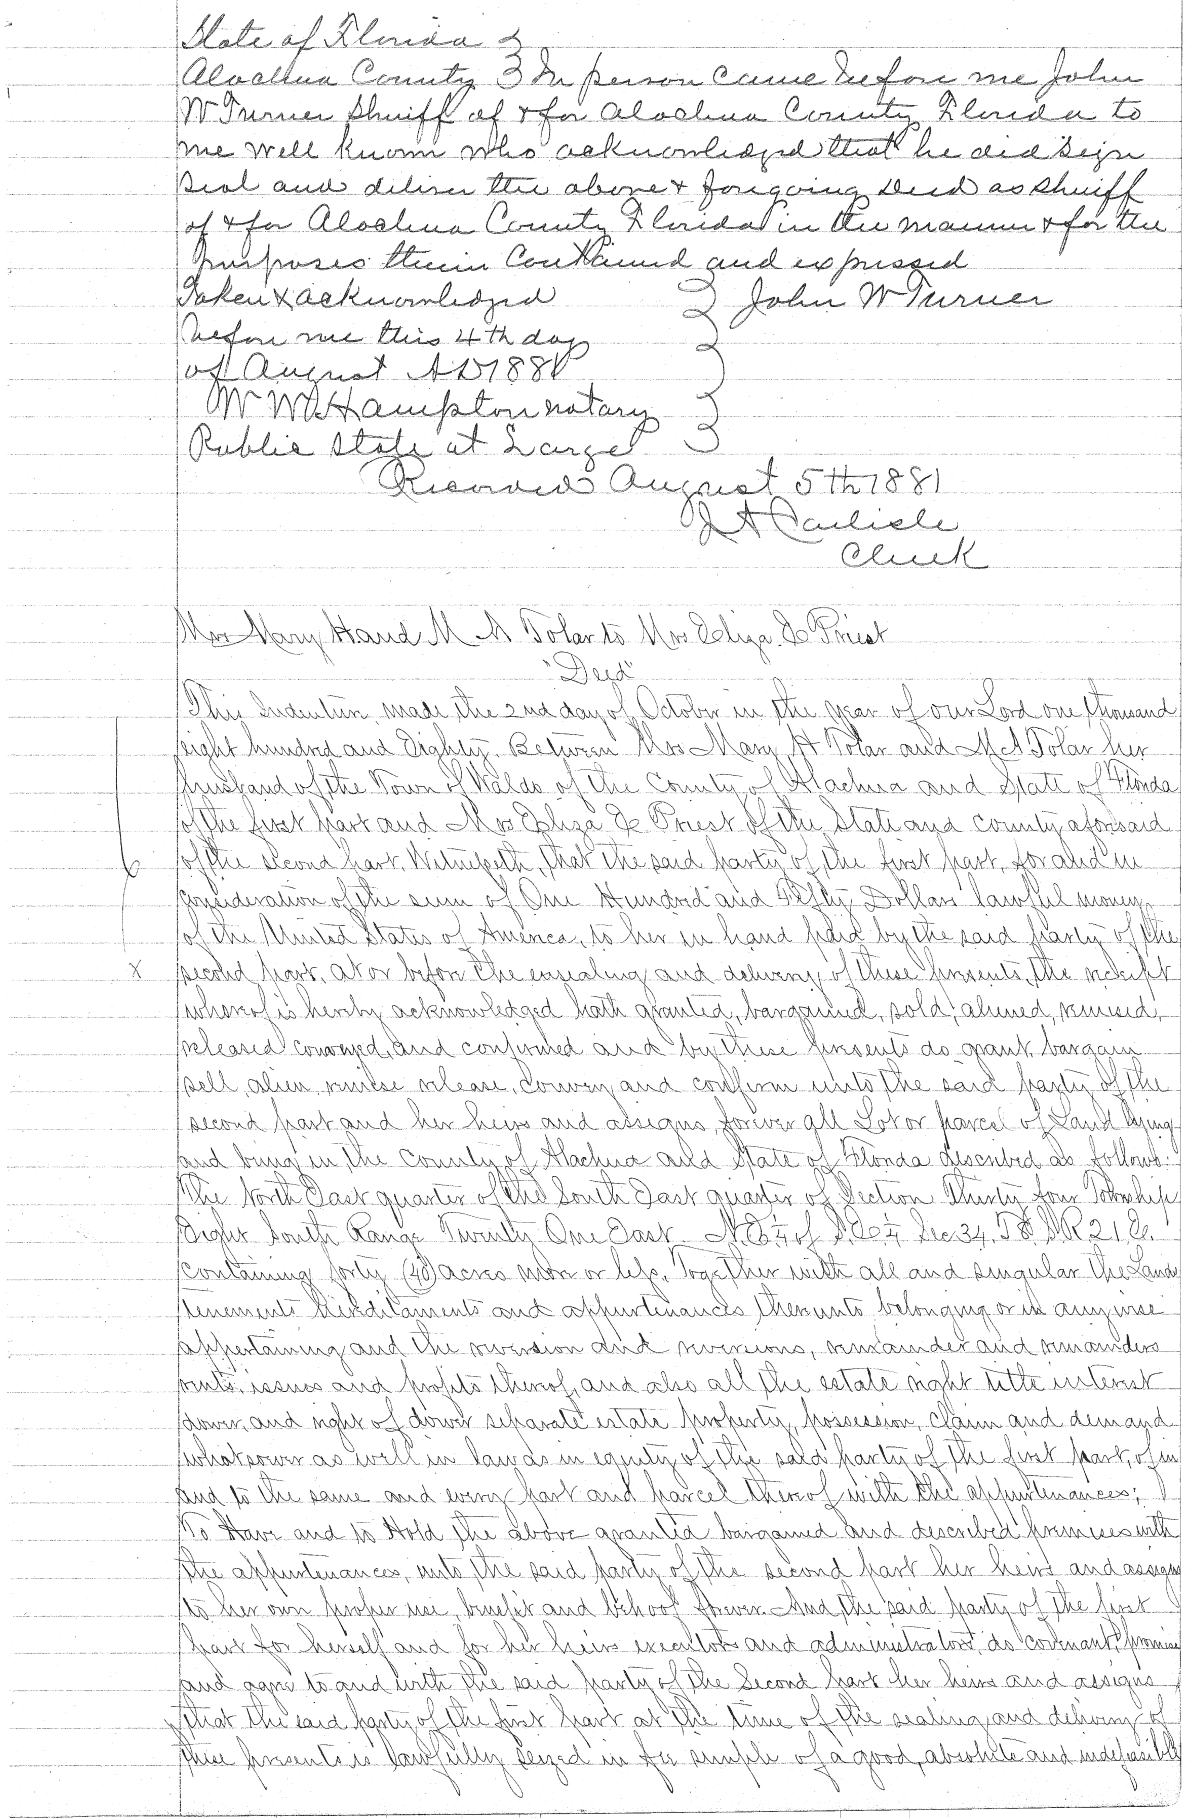 State of Florida }
Alachua County } In person came before me John
W Turner Sheriff of & for Alachua County Florida to
me well known who acknowledged that he did sign
seal and deliver the above & foregoing Deed as Sheriff
of & for Alachua County Florida in the manner & for the
purposes therein contained and expressed
Taken & acknowledged } John W Turner
before me this 4th day
of August AD 1881
W W Hampton notary
Public State at Large
Recorded August 5th 1881
J A Carlisle
Clerk
Mrs Mary H and M A Tolar to Mrs Eliza E Priest
"Deed"
This Indenture, made the 2nd day of October in the year of our Lord one thousand
eight hundred and Eighty. Between Mrs Mary H Tolar and M A Tolar her
husband of the Town of Waldo of the County of Alachua and State of Florida
of the first part and Mrs Eliza E Priest of the State and county aforesaid
of the second part. Witnesseth, that the said party of the first part, for and in
consideration of the sum of One Hundred and Fifty Dollars lawful money
of the United States of America, to her in hand paid by the said party of the
x second part, at or before the ensealing and delivery of these presents, the receipt
whereof is hereby acknowledged hath granted, bargained, sold, aliened, remised,
released conveyed, and confirmed and by these presents do grant, bargain
sell, alien, remise release, convey and confirm unto the said party of the
second part and her heirs and assigns, forever all Lot or parcel of Land lying
and being in the County of Alachua and State of Florida described as follows:
The North East quarter of the South East quarter of Section Thirty four Township
Eight South Range Twenty One East. N.E¼ of S.E¼ Sec 34, T 8 S. R 21 E.
containing forty (40) acres more or less, Together with all and singular the Lands
tenements hereditaments and appurtenances, thereunto belonging or in anywise
appertaining and the reversion and reversions, remainder and remainders
rents, issues and profits thereof, and also all the estate right title interest
dower, and right of dower separate estate property, possession, claim and demand
whatsoever as well in law as in equity of the said party of the first part, of in
and to the same and every part and parcel thereof with the appurtenances;
To Have and to Hold the above granted bargained and described premises with
the appurtenances, unto the said party of the second part her heirs and assigns
to her own proper use, benefit and behoof forever. And the said party of the first
part for herself and for her heirs executors and administrators, do covenant, promise
and agree to and with the said party of the Second part her heirs and assigns
that the said party of the first part at the time of the sealing and delivery of
these presents is lawfully seized in fee simple of a good, absolute and indefeasible